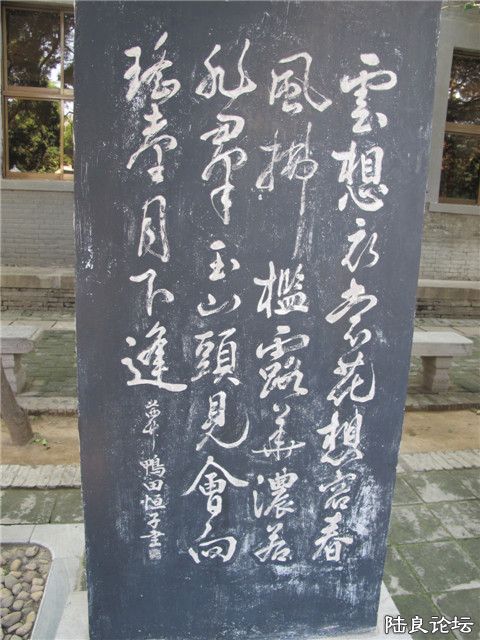 雲想衣裳花想容春
風拂檻露華濃若
非群玉山頭見會向
瑤臺月下逢
鴨田恒子書
陆良论坛